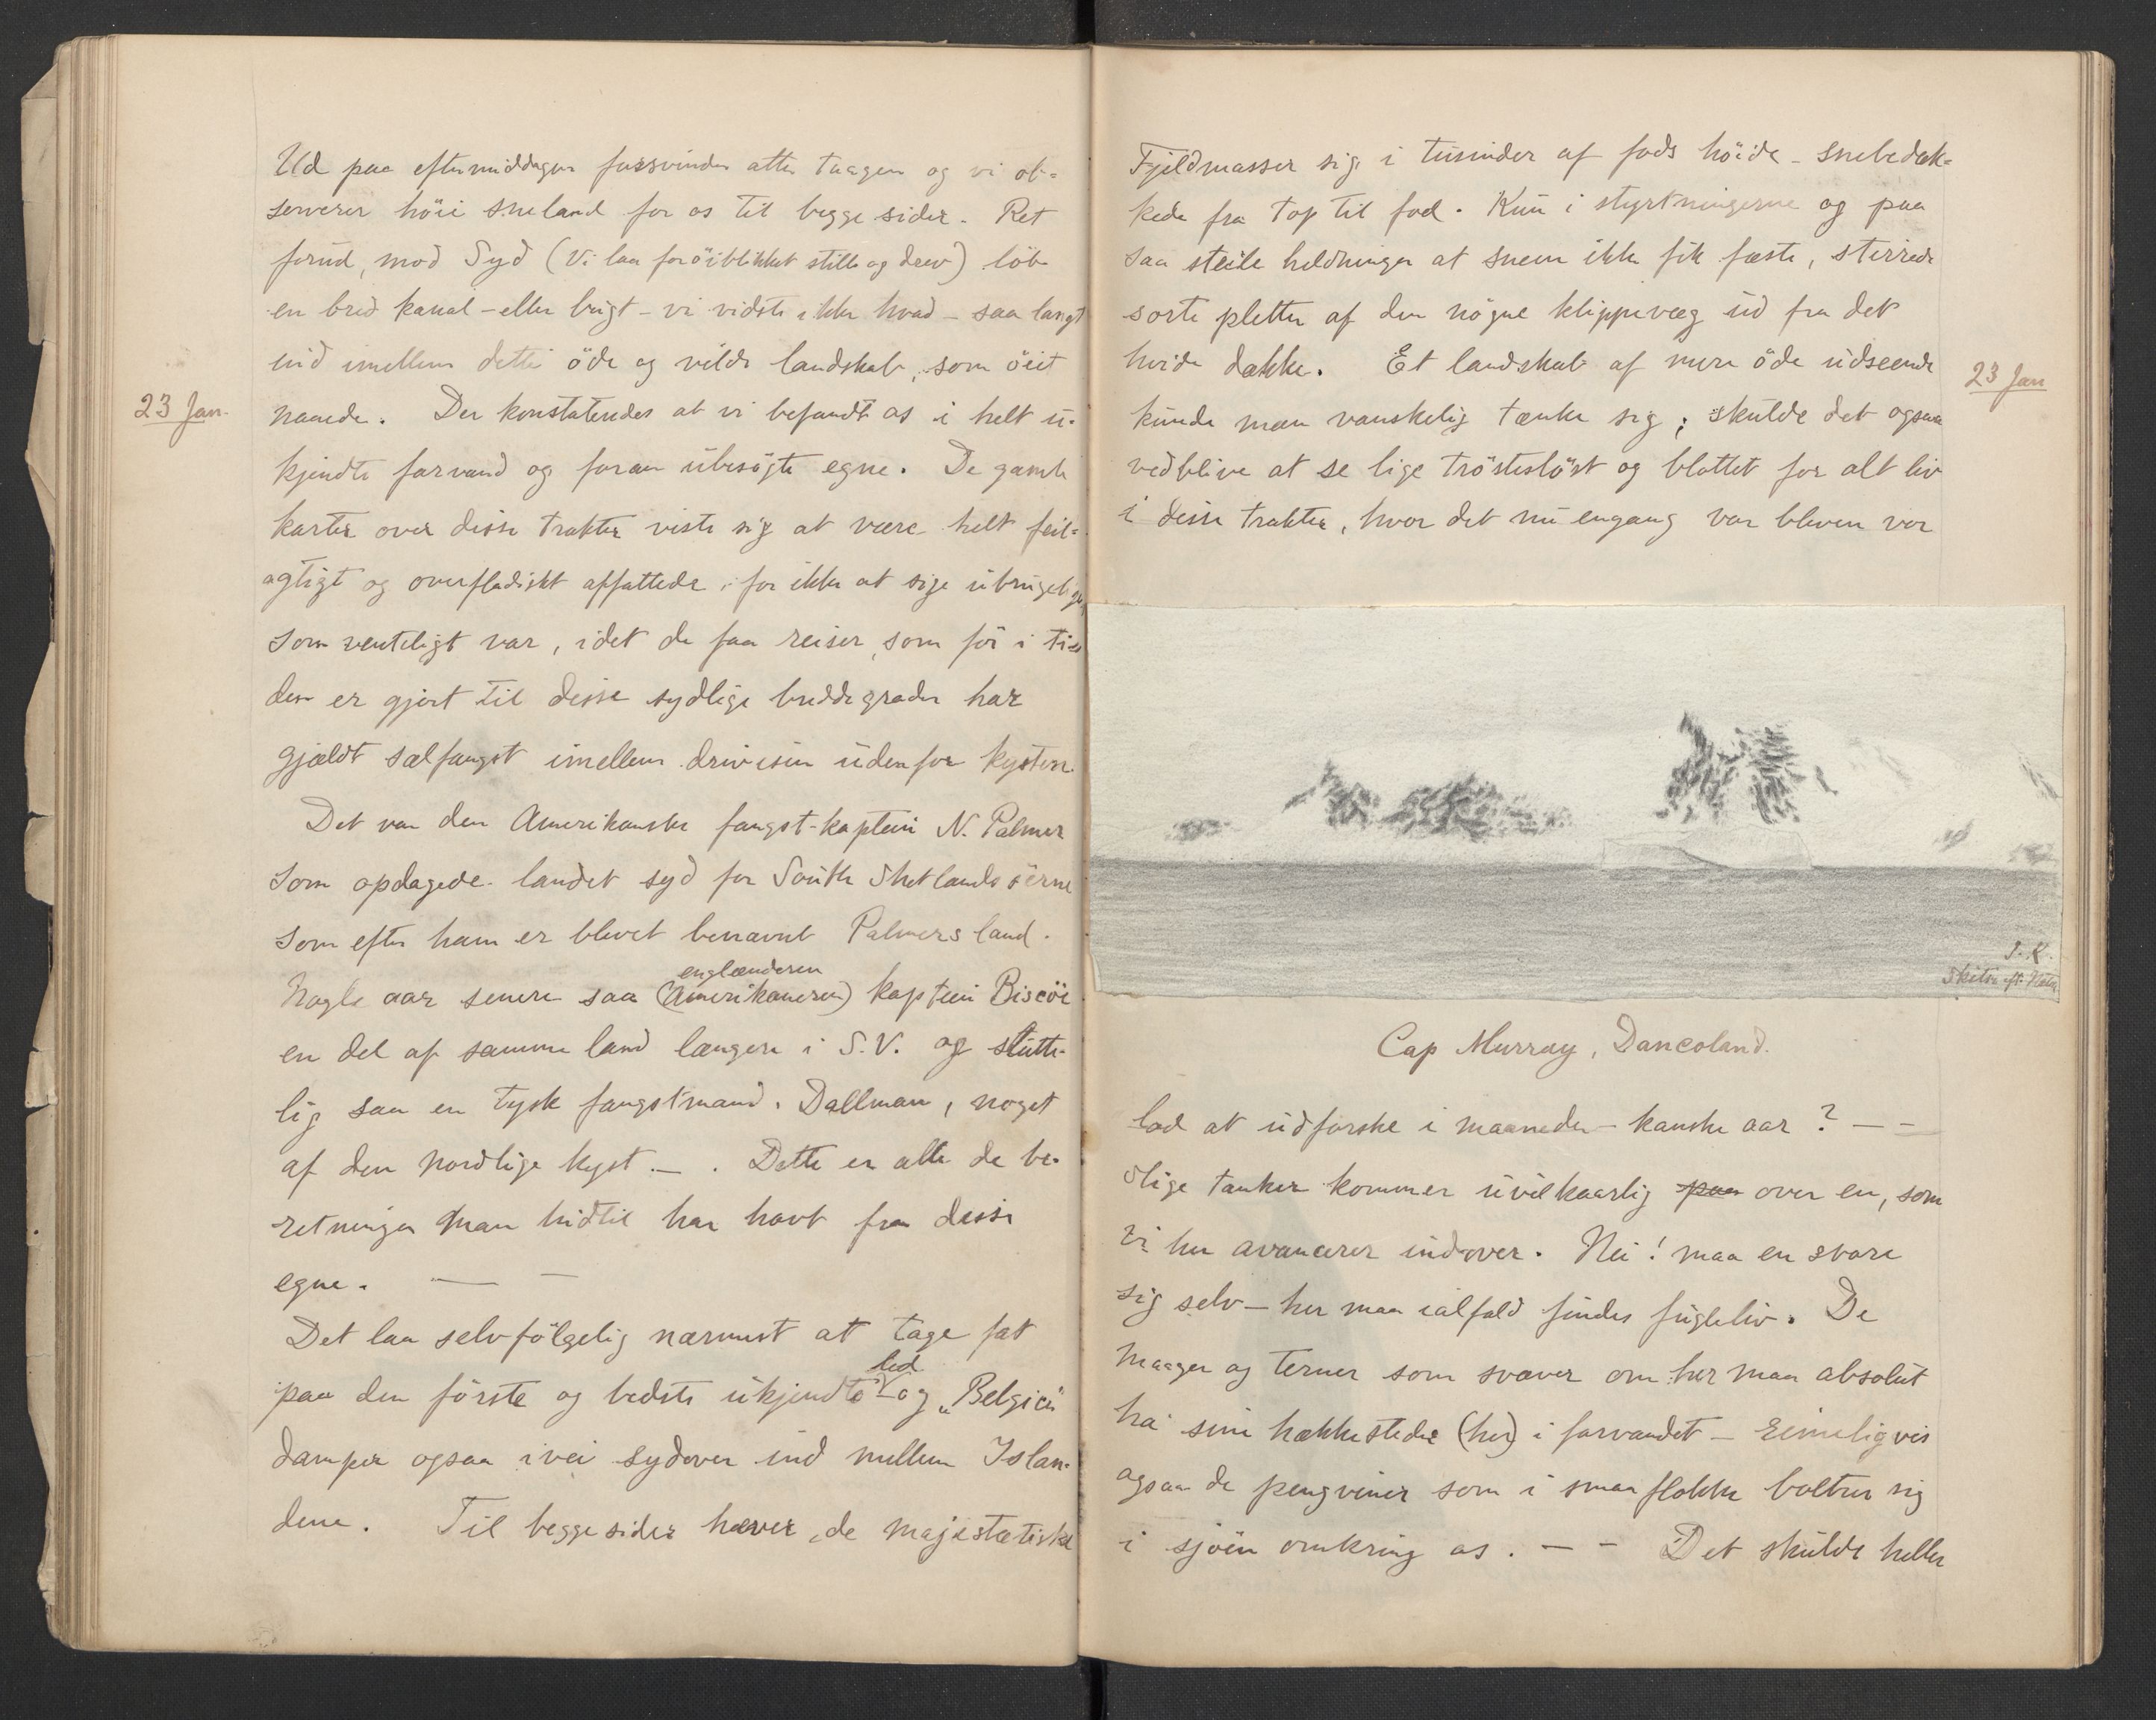 Ud paa eftermiddagen forsvinder atter taagen og vi ob=
serverer höie sneland for os til begge sider. Ret
forud, mod Syd (Vi laa for öiblikket stille og drev) löb
en bred kanal – eller bugt – vi vidste ikke hvad – saa langt
ind imellem dette öde og vilde landskab, som öiet
23 Jan.
naaede. Der konstateredes at vi befandt os i helt u-
kjendte farvand og foran ubesögte egne. De gamle
karter over disse trakter viste sig at være helt feil=
agtigt og overfladiskt affattede, for ikke at sige ubrugelige,
som venteligt var, idet de faa reiser, som för i ti=
den er gjort til disse sydlige breddegrader har
gjældt sælfangst imellem drivisen udenfor kysten.
Det var den Amerikanske fangst-kaptein N. Palmer
som opdagede landet syd for South Shetlandsöerne
som efter ham er blevet benævnt Palmers land.
englænderen
Nogle aar senere saa (Amerikaneren) kaptein Biscöe
en del af samme land længere i S.V. og slutte-
lig saa en tysk fangstmand, Dallman, noget
af den nordlige kyst. – . Dette er alle de be-
retninger man hidtil har havt fra disse
egne. — –
Det laa selvfölgelig nærmest at tage fat
led
paa den förste og bedste ukjendte og „Belgica"
damper ogsaa ivei sydover ind mellem Islan-
dene. Til begge sider hæver de majestætiske
Fjeldmasser sig i tusinder af fods höide – snebedæk=
kede fra top til fod. Kun i styrtningerne og paa
saa steile heldninger at sneen ikke fik fæste, stirrede
sorte pletter af den nögne klippevæg ud fra det
hvide dække. Et landskab af mere öde udseende
23 Jan
kunde man vanskelig tænke sig; skulde det ogsaa
vedblive at se lige tröstelöst og blottet for alt liv
i disse trakter, hvor det nu engang var bleven vor
J. K.
Skitse eft. Natur
Cap Murray, Dancoland.
lod at udforske i maaneder – kanske aar? – –
Slige tanker kommer uvilkaarlig paa over en, som
vi her avancerer indover. Nei! maa en svare
sig selv – her maa ialfald findes fugleliv. De
maager og terner som svæver om her maa absolut
ha sine hækkesteder (her) i farvandet – rimeligvis
ogsaa de pengviner som i smaa flokke boltrer sig
i sjöen omkring os. – – Det skulde heller